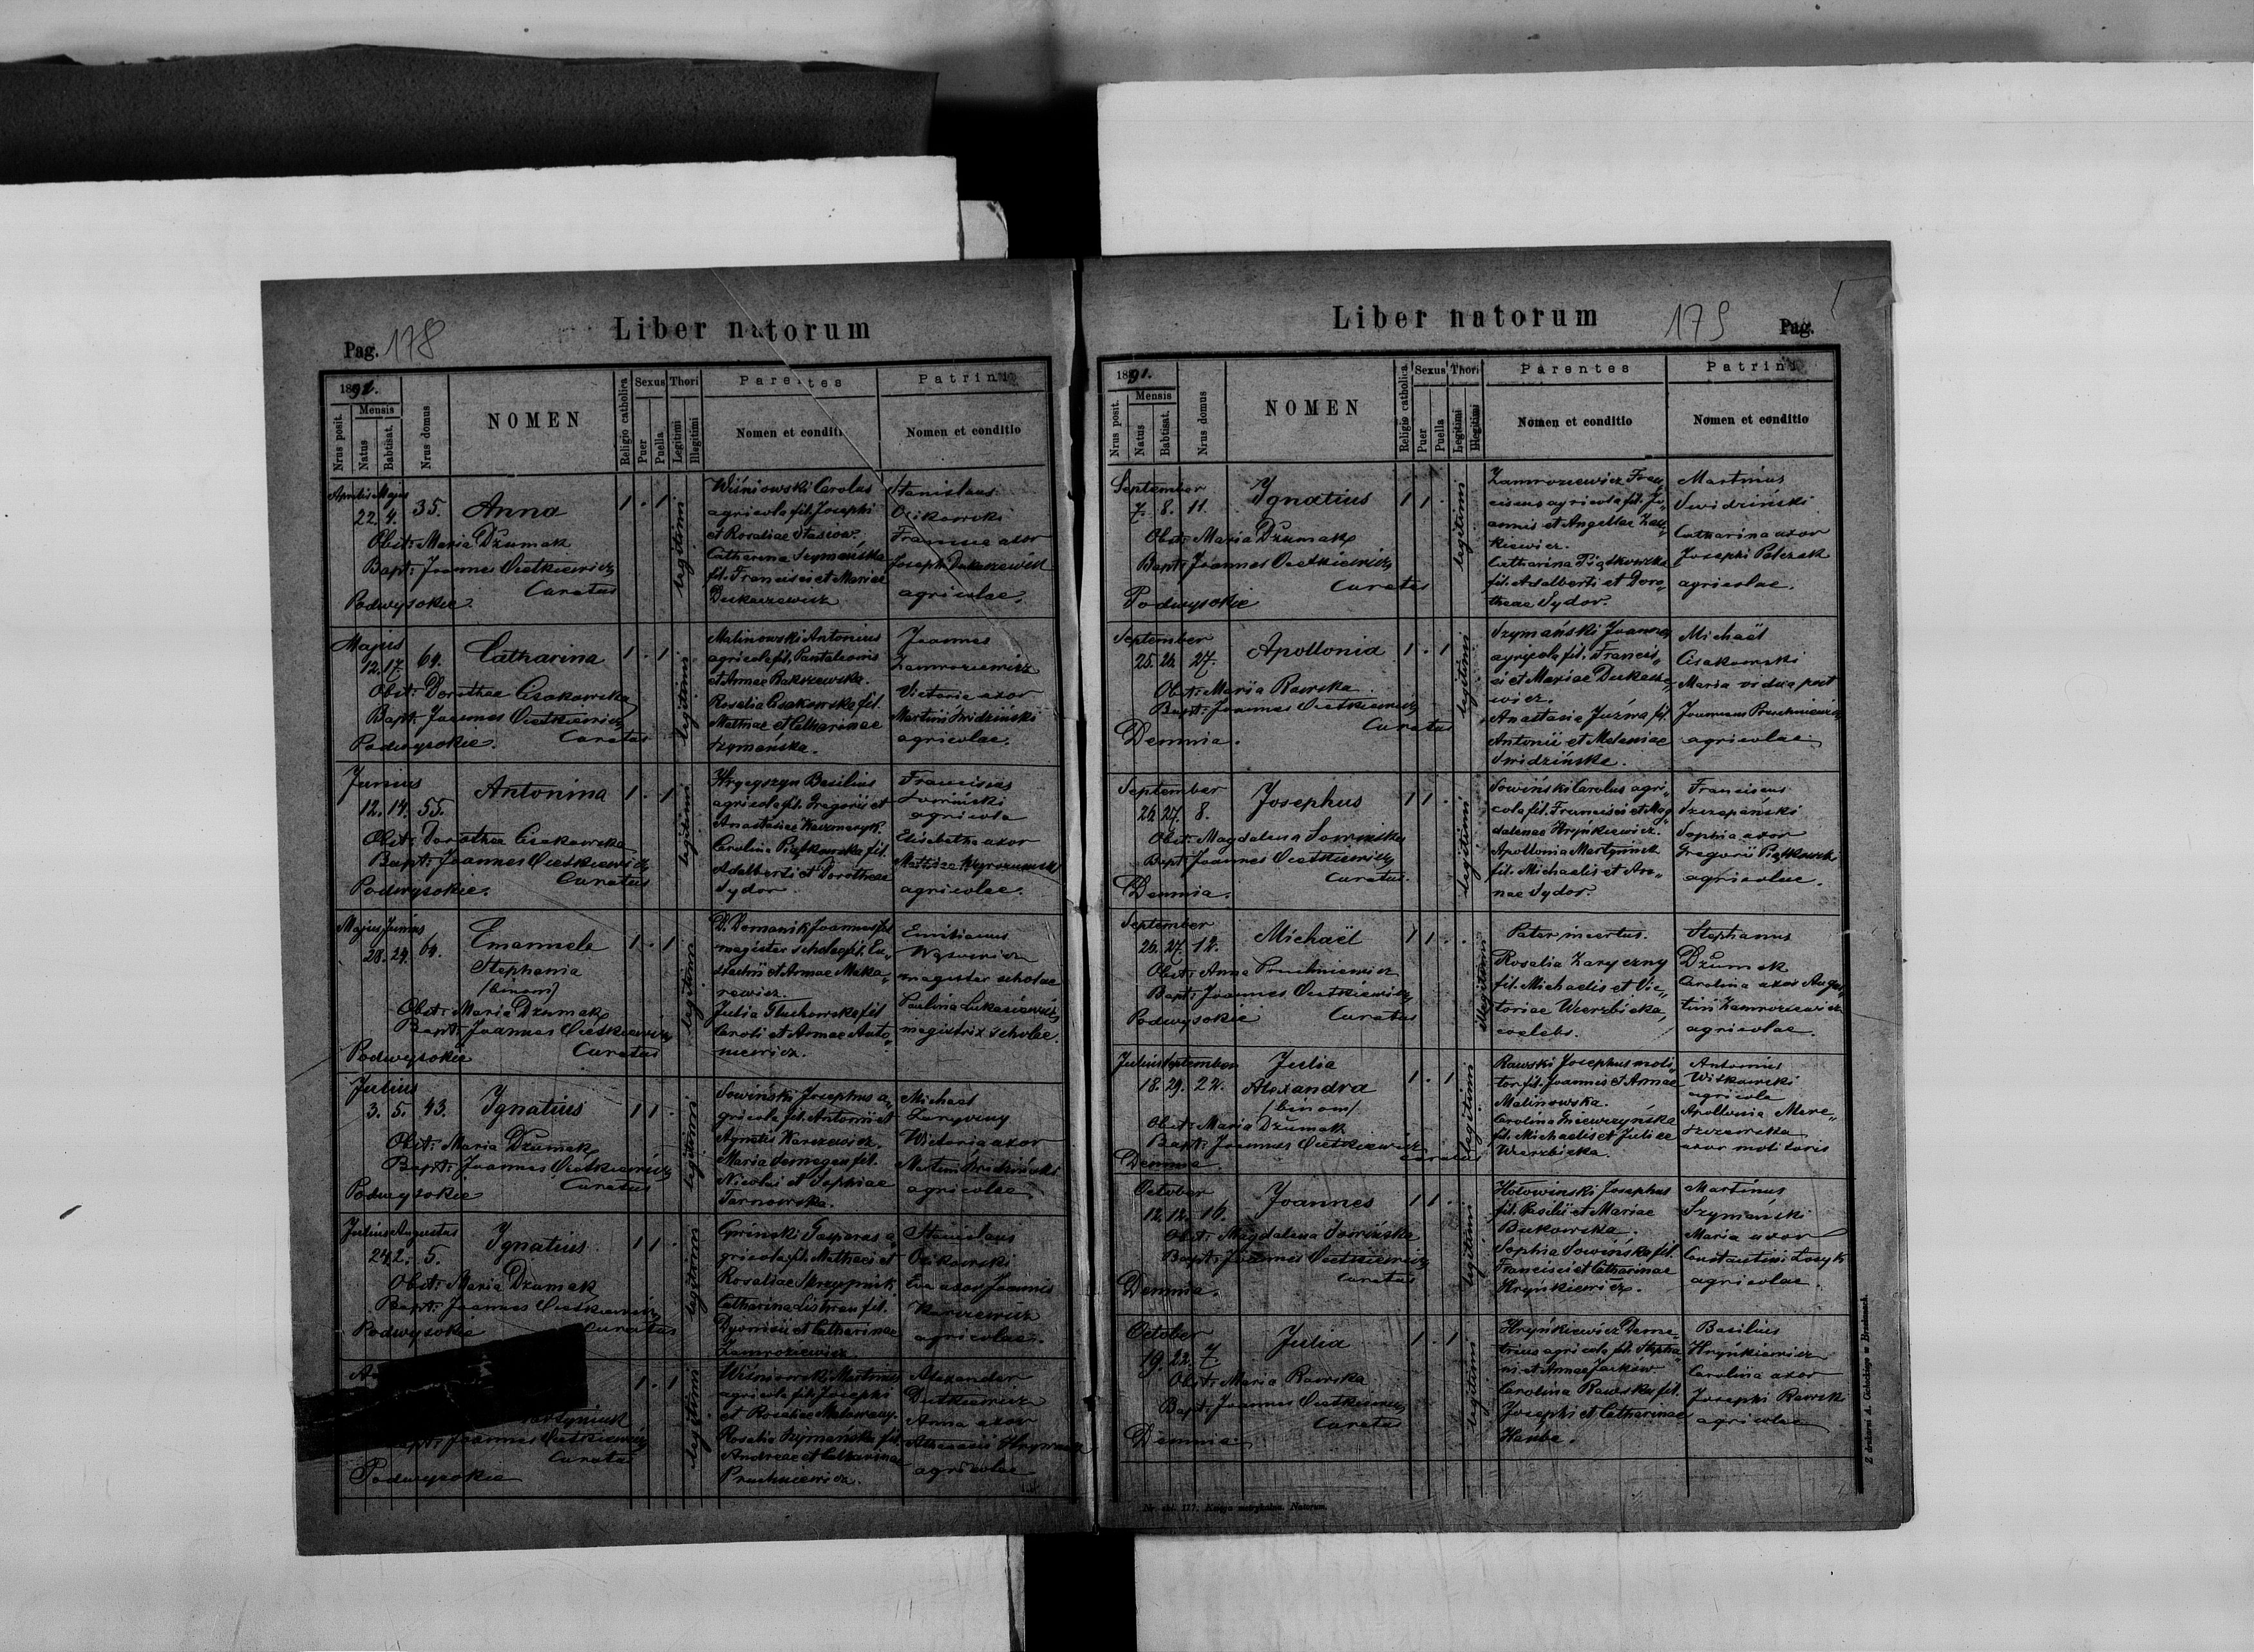 Pag. 178
Liber natorum
1891.
Nrus posit.
Mensis
Natus
Babtisat.
Nrus domus
NOMEN
Religio catholica
Sexus
Puer
Puella
Thori
Legitimi
Illegitimi
Parentes
Nomen et conditi
Patrini
Nomen et conditio
Aprilis Majus
22. 4. 35. Anna 1 . 1
legitimi
Obst: Maria Dżumak
Bapt: Joannes Cietkiewicz
Curatus
Podwysokie.
Wiśniowski Carolus
agricola fil. Josephi
et Rosaliae Stasiow.
Catharina Szymańska
fil. Francisci et Mariae
Dukaczewicz
Stanislaus
Osikowski
uxor
Josephi
agricolae.
Majus
12. 17. 64. Catharina 1 . 1
legitimi
Obst: Dorothea Cisakowska
Bapt: Joannes Cietkiewicz
Curatus
Podwysokie.
Malinowski Antonius
agricola fil. Pantaleonis
et Annae
Rosalia Cisakowska fil.
Mathiae et Catharinae
Szymańska.
Joannes
Zamroziewicz
Victoria uxor
Martini Świdziński
agricolae.
Junius
12. 14. 55. Antonina 1 . 1
legitimi
Obst: Dorothea Cisakowska
Bapt: Joannes Cietkiewicz
Curatus
Podwysokie.
Basilius
agricola fil. Gregorii et
Anastasiae Kaczmaryk.
Carolina Piątkowska fil.
Adalberti et Dorotheae
Sydor.
Franciscus
Sowiński
agricola
Elisabetha uxor
Mathiae
agricolae.
Majus Junius
28. 24. 64. Emanuela 1 . 1
Stephania
(binom)
legitimi
Obst: Maria Dżumak
Bapt: Joannes Cietkiewicz
Curatus
Podwysokie
D. Domanik Joannes
magister scholae fil. Eu„
stachii et Annae Maka„
rewicz.
Julia Głuchowska fil
Caroli et Annae Anto„
niewicz.
Emilianus
magister scholae
Paulina Lukasiewicz
magistrix scholae.
Julius
3. 5. 43. Ignatius 1 1 .
legitimi
Obst: Maria Dżumak
Bapt: Joannes Cietkiewicz
Curatus
Podwysokie
Sowiński Josephus a„
gricola fil. Antonii et
Agnetis Karczewicz.
Maria fil.
Nicolai et Sophiae
Tarnowska.
Michael
Zaryczny
Wictoria uxor
Martini Świdziński
agricolae
Julius Augustus
24. 2. 5. Ignatius 1 1 .
legitimi
Obst: Maria Dżumak
Bapt: Joannes Cietkiewicz
Curatus
Podwysokie
Gasparus a„
gricola fil. Mathaei et
Rosaliae Skrzypnik
Catharina Listwan fil.
Dyonisii et Catharinae
Zamroziewicz
Stanislaus
Osikowski
Eva uxor Joannis
Karczewicz
agricolae.
1 . 1
legitimi
Joannes Cietkiewicz
Curatus
Podwysokie
Wiśniowski Martinus
agricola fil. Josephi
et Rosaliae
Rosalia Szymańska fil.
Andreae et Catharinae
Pruchniewicz.
Alexander
Dutkiewicz
Anna uxor
agricolae
Liber natorum
179
Pag.
1891.
Nrus posit.
Mensis
Natus
Babtisat.
Nrus domus
NOMEN
Religio catholica
Sexus
Puer
Puella
Thori
Legitimi
Illegitimi
Parentes
Nomen et conditio
Patrini
Nomen et conditio
September
7. 8. 11. Ignatius 1 1 .
legitimi
Obst: Maria Dżumak
Bapt: Joannes Cietkiewicz
Curatus
Podwysokie
Zamroziewicz Fran„
ciscus agricola fil. Jo„
annis et Angellae
kiewicz.
Catharina Piątkowska
fil. Adalberti et Doro„
theae Sydor.
Martinus
Świdziński
Catharina uxor
Josephi
agricolae.
September
25. 26. 27. Apollonia 1 . 1
legitimi
Obst: Maria Rawska
Bapt: Joannes Cietkiewicz
Curatus
Demnia.
Szymański Joannes
agricola fil. Francis„
ci et Mariae Dukacze„
wicz.
Anastasia Juźwa fil.
Antonii et Melaniae
Świdzińska.
Michaël
Cisakowski
Maria vidua post
Joannem Pruchniewicz
agricolae.
September
26. 27. 8. Josephus 1 1 .
legitimi
Obst: Magdalena Sowińska
Bapt: Joannes Cietkiewicz
Curatus.
Demnia.
Sowiński Carolus agri„
cola fil. Francisci et Mag„
dalenae Hryńkiewicz.
Apollonia Martyniuk
fil. Michaelis et An„
nae Sydor.
Franciscus
Szczepański
Sophia uxor
Gregorii Piątkowski
agricolae.
September
26. 27. 12. Michaël 1 1 . .
illegitimi
Obst: Anna Pruchniewicz
Bapt: Joannes Cietkiewicz
Curatus
Podwysokie
Pater incertus.
Rosalia Zaryczny
fil. Michaelis et Vic„
toriae Wierzbicka,
coelebs.
Stephanus
Dżumak
Carolina uxor Augus„
tini Zamroziewicz
agricolae.
Julius September
18. 29. 22. Julia
Alexandra 1 . 1
(binom)
legitimi
Obst: Maria Dżumak
Bapt: Joannes Cietkiewicz
Curatus
Demnia.
Rawski Josephus moli„
tor fil. Joannis et Annae
Malinowska.
Carolina
fil. Michaelis et Juliae
Wierzbicka.
Antonius
Witkowski
agricola
Apollonia
uxor molitoris
October
12. 12. 16. Joannes 1 1 .
legitimi
Obst: Magdalena Sowińska
Bapt: Joannes Cietkiewicz
Curatus
Demnia.
Hołowiński Josephus
fil. Basilii et Mariae
Bukowska.
Sophia Sowińska fil.
Francisci et Catharinae
Hryńkiewicz.
Martinus
Szymański
Maria uxor
Constantini
agricolae.
October
19. 22. 7 Julia 1 . 1
legitimi
Obst: Maria Rawska
Bapt: Joannes Cietkiewicz
Curatus
Demnia
Hryńkiewicz Deme„
trius agricola fil. Stepha„
ni et Annae Jacków
Carolina Rawska fil.
Josephi et Catharinae
Basilius
Hryńkiewicz
Carolina uxor
Josephi Rawski
agricolae
Z drukarni A. Cichockiego w Brzeżanach.